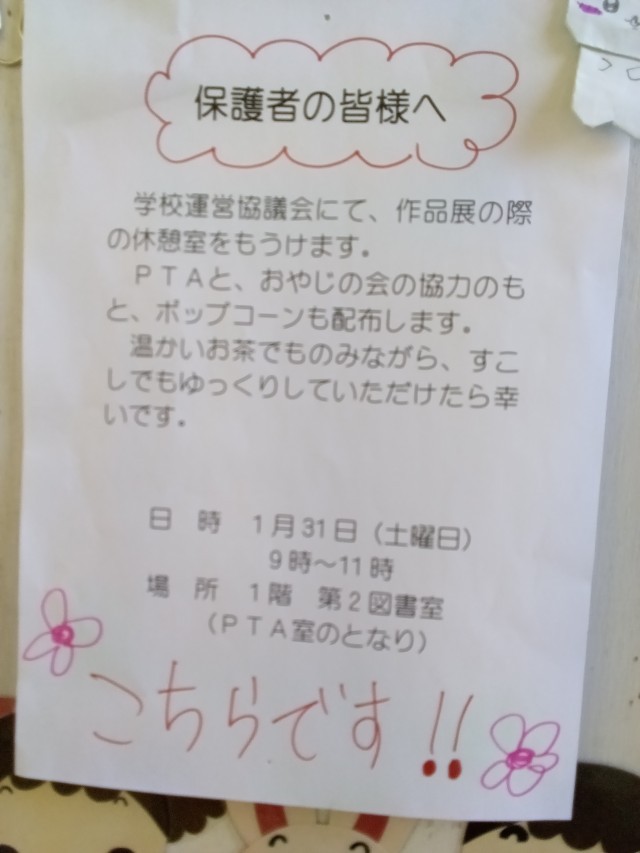 保護者の皆様へ
学校運営協議会にて、作品展の際
の休憩室をもうけます。
ＰＴＡと、おやじの会の協力のも
と、ポップコーンも配布します。
温かいお茶でものみながら、すこ
しでもゆっくりしていただけたら幸
いです。
日　時　1月31日（土曜日）
9時～11時
場　所　1階　第2図書室
（ＰＴＡ室のとなり）
こちらです!!